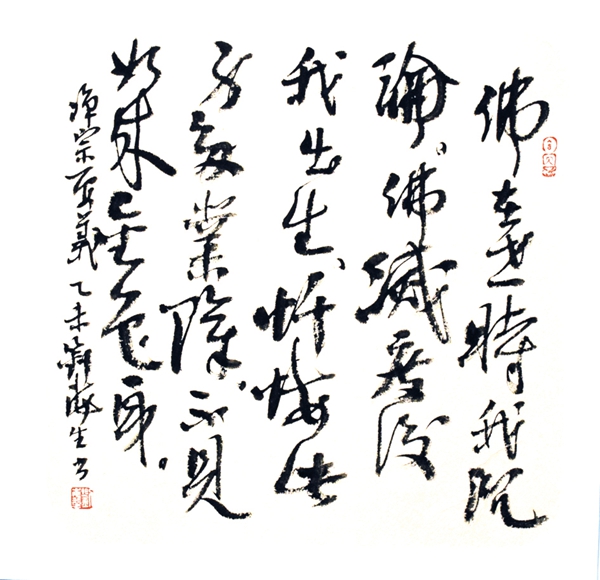 佛在世時我沉
淪。佛滅度後
我出生、忏悔此
身多業障、不見
如来金色身。
禅宗 義 乙未 海生书